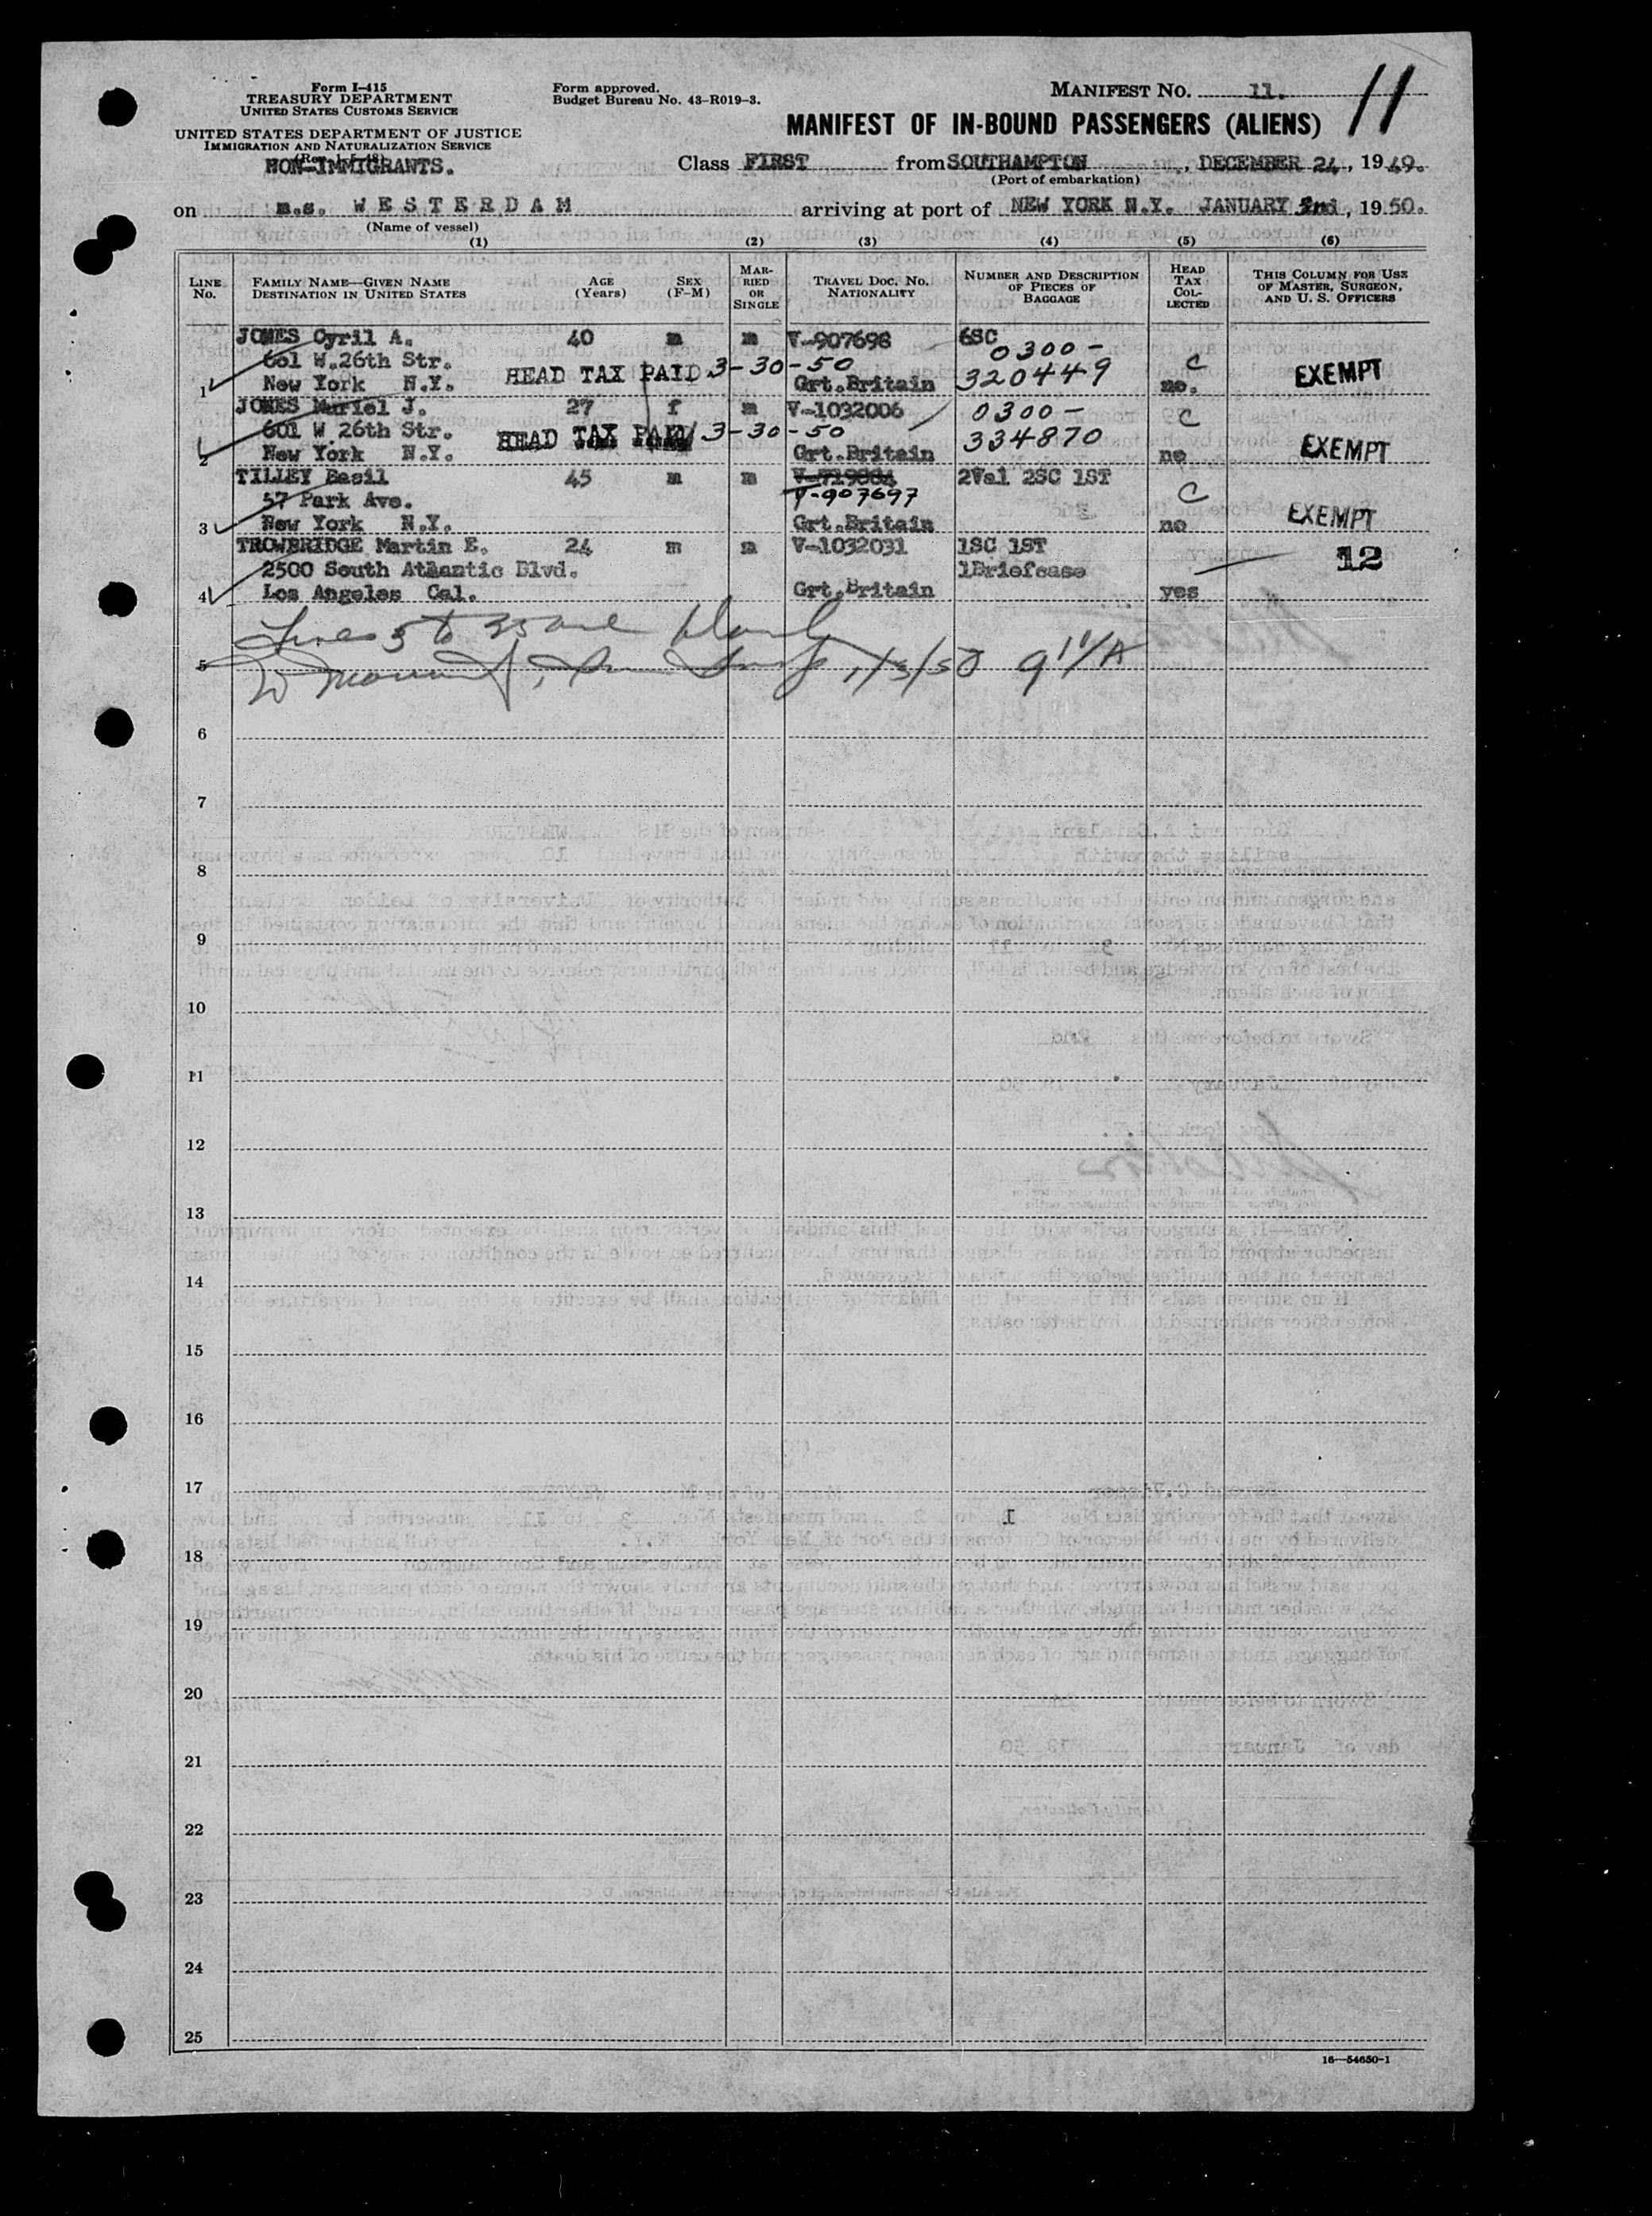 Form I-415
TREASURY DEPARTMENT
UNITED STATES CUSTOMS SERVICE
UNITED STATES DEPARTMENT OF JUSTICE
IMMIGRATION AND NATURALIZATION SERVICE
NON-IMMIGRANTS.
Form approved.
Budget Bureau No. 43-R019-3.
MANIFEST NO. 11.
11
MANIFEST OF IN-BOUND PASSENGERS (ALIENS)
Class FIRST from SOUTHAMPTON, DECEMBER 24, 1949.
(Port of embarkation)
on m.s. WESTERDAM arriving at port of NEW YORK N.Y. JANUARY 2nd, 1950.
(Name of vessel)
(1) (2) (3) (4) (5) (6)
LINE NO. FAMILY NAME—GIVEN NAME DESTINATION IN UNITED STATES AGE (Years) SEX (F-M) MARRIED OR SINGLE TRAVEL DOC. NO. NATIONALITY NUMBER AND DESCRIPTION OF PIECES OF BAGGAGE HEAD TAX COLLECTED THIS COLUMN FOR USE OF MASTER, SURGEON, AND U. S. OFFICERS
JONES Cyril A. 40 m m V-907698 6SC
601 W.26th Str. 0300-
1 New York N.Y. HEAD TAX PAID 3-30-50 Grt.Britain 320449 no. C EXEMPT
JONES Muriel J. 27 f m V-1032006 0300-
601 W 26th Str. HEAD TAX PAID 3-30-50 334870 C
2 New York N.Y. Grt.Britain no EXEMPT
TILLEY Basil 45 m m V-719884 2Val 2SC 1ST
57 Park Ave. V-907697 C
3 New York N.Y. Grt.Britain no EXEMPT
TROWBRIDGE Martin E. 24 m m V-1032031 1SC 1ST 12
2500 South Atlantic Blvd. 1Briefcase
4 Los Angeles Cal. Grt.Britain yes
Lines 5 to 25 are blank
5 1/3/50
6
7
8
9
10
11
12
13
14
15
16
17
18
19
20
21
22
23
24
25
16—54650-1